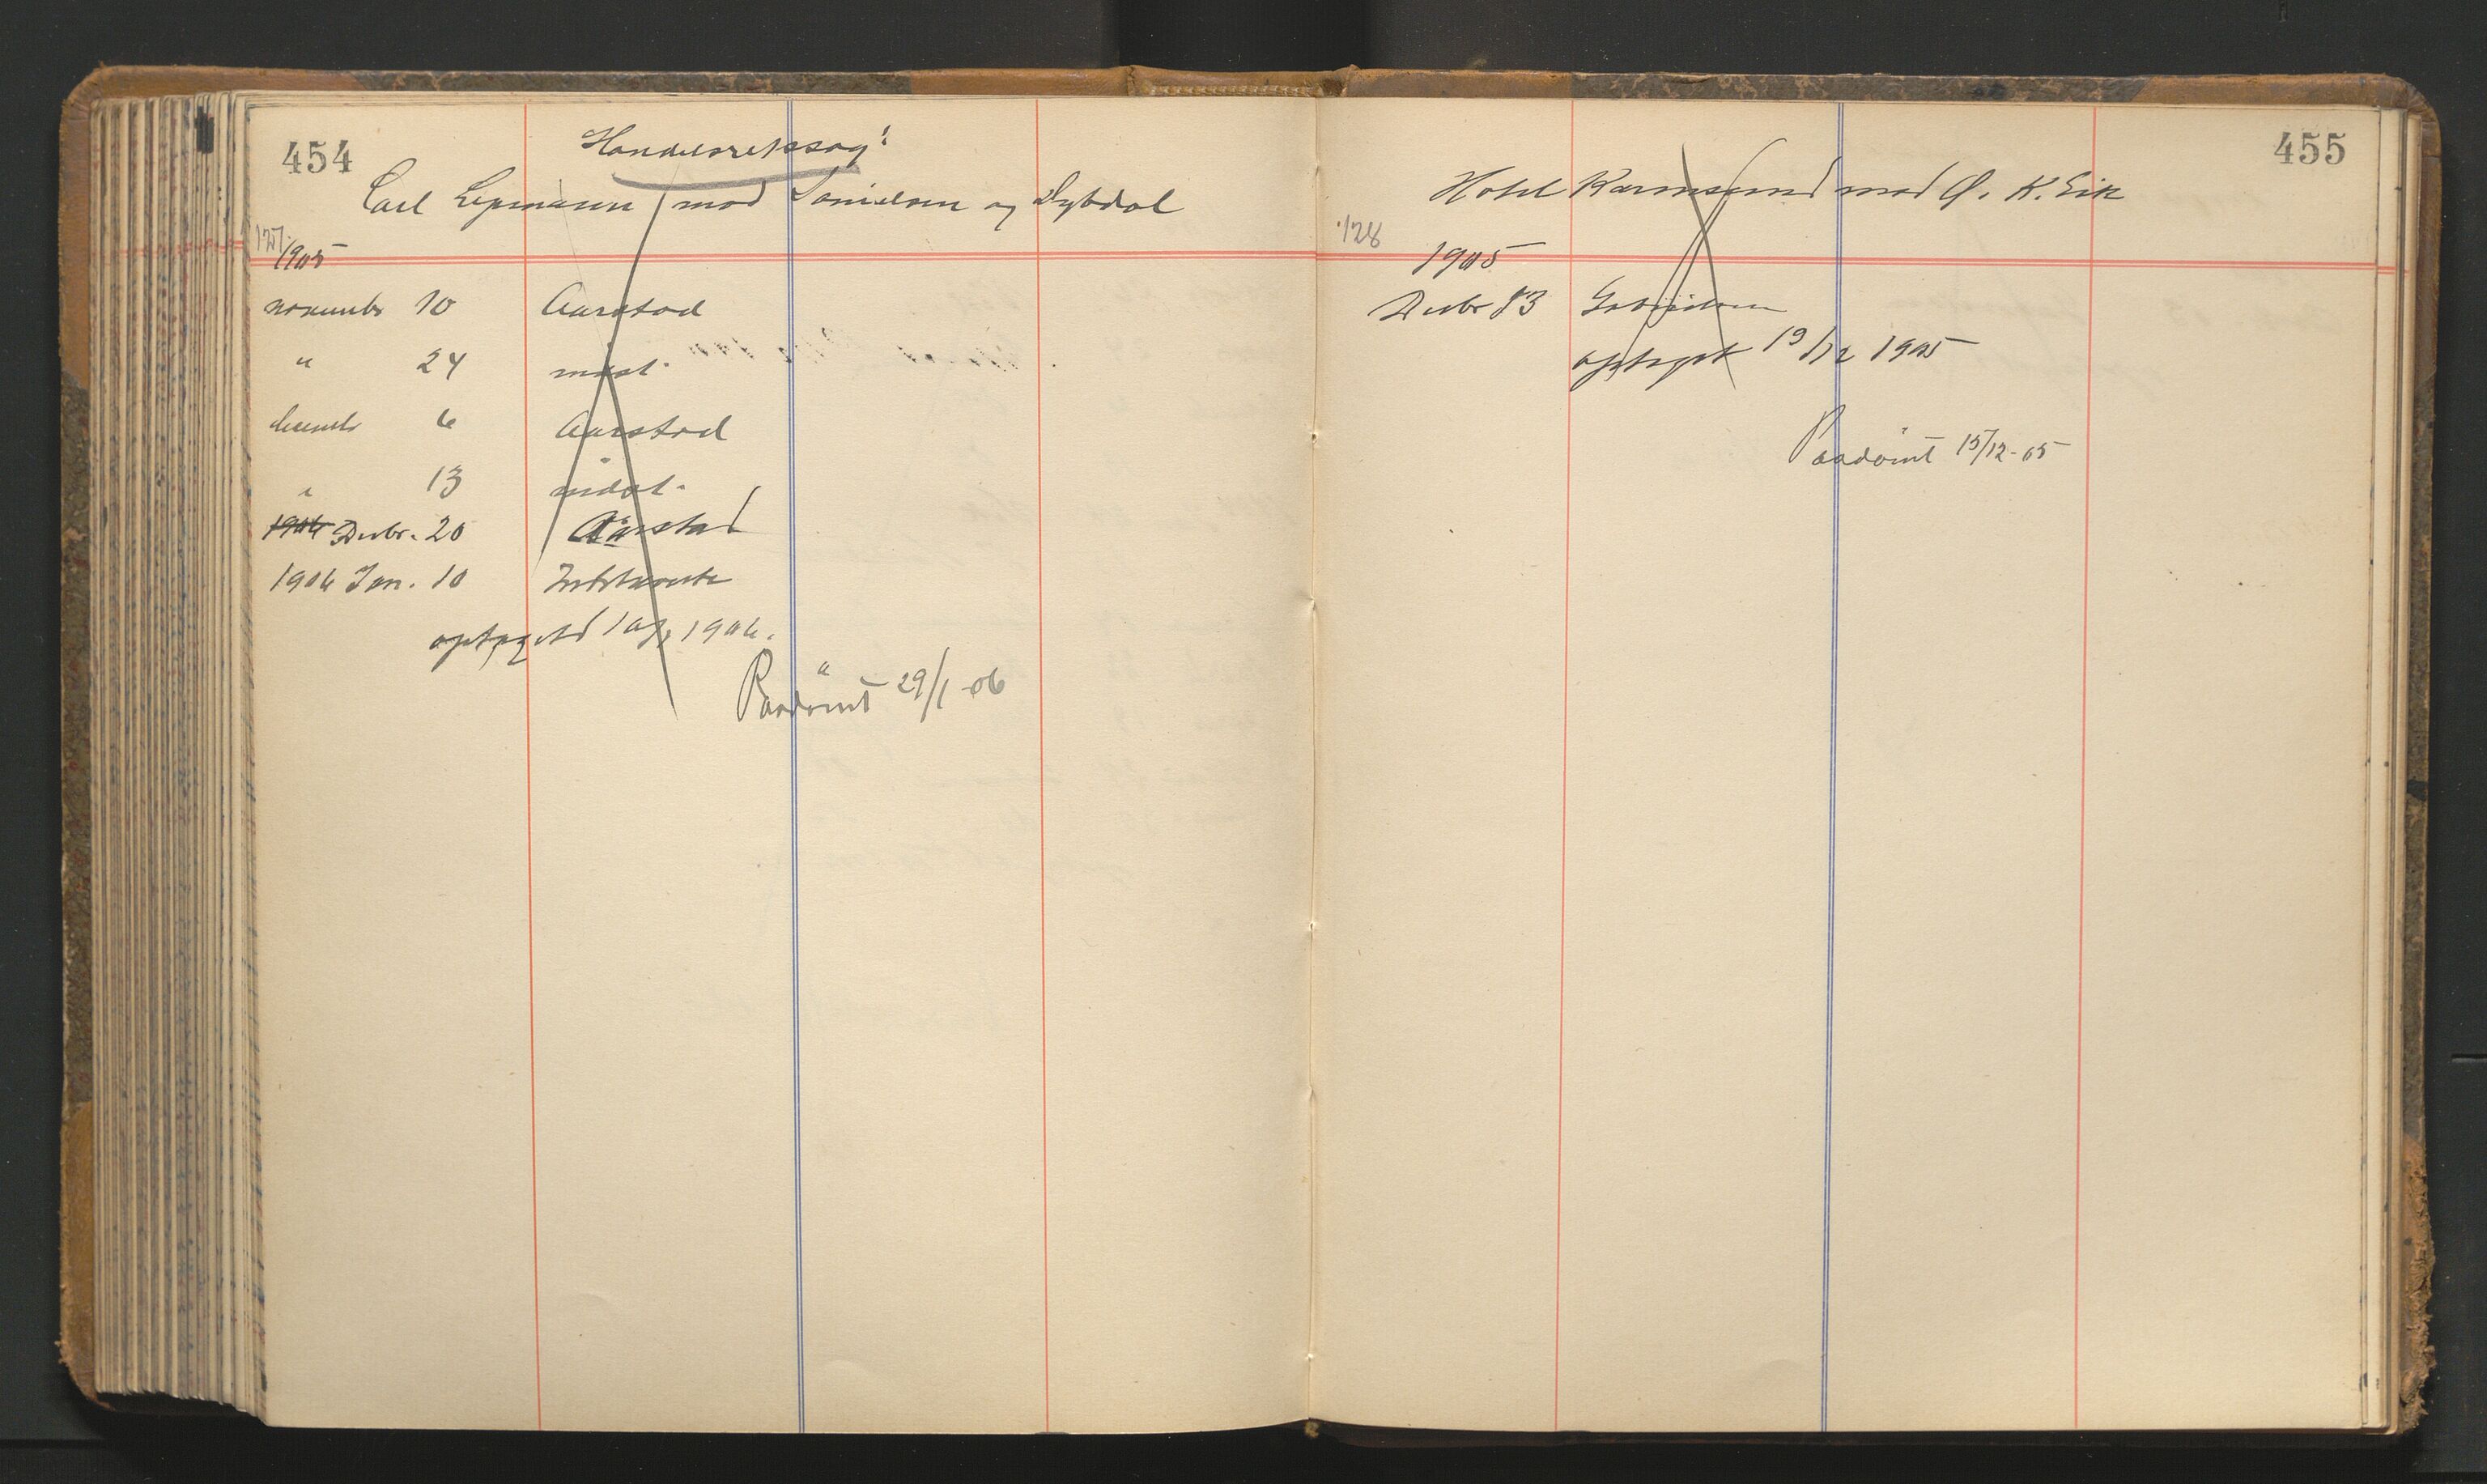 454
Handelsretssag:
Carl Lepmann mod Danielsen og Dybdal
127/
1905
november 10 Aarstad
" 24 indst.
december 6 Aarstad
" 13 indst.
1906 Decbr. 20 Aarstad
1906 Jan. 10
optaget 10/1 1906.
Paadömt 29/1-06
455
Hotel Karmsund mod Ø. K. Eik
128
1905
Decbr 13
optaget 13/12 1905
Paadömt 15/12-05